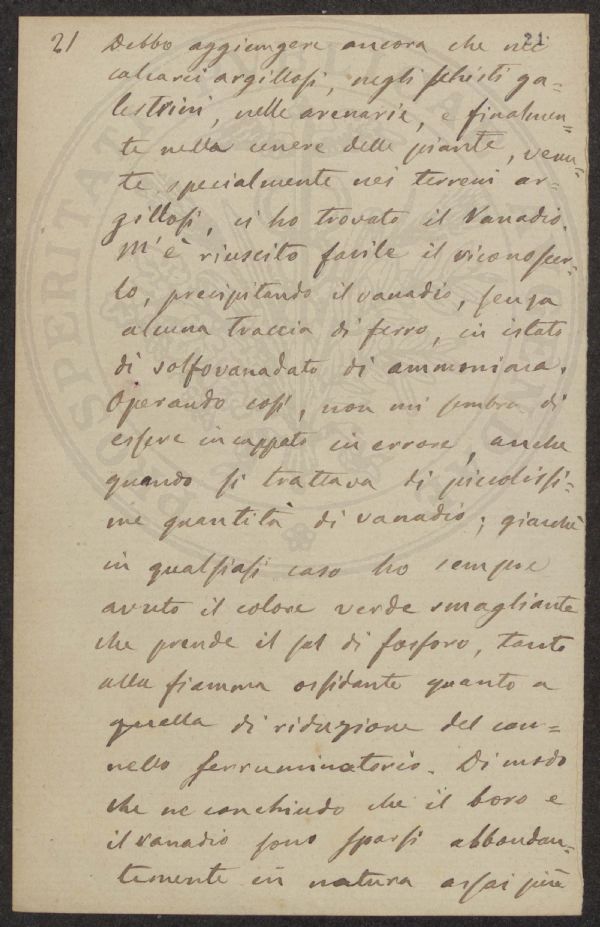 21 Debbo aggiungere ancora che nei 21
calcarei argillosi, negli schisti ga=
lestrini, nelle arenarie, e finalmen=
te nella cenere delle piante, venu=
te specialmente nei terreni ar=
gillosi, ci ho trovato il Vanadio.
M'è riuscito facile il riconoscer=
lo, precipitando il vanadio, senza
alcuna traccia di ferro, in istato
di solfovanadato di ammoniaca.
Operando così, non mi sembra di
essere incappato in errore, anche
quando si trattava di piccolissi=
me quantità di vanadio; giacchè
in qualsiasi caso ho sempre
avuto il colore verde smagliante
che prende il sal di fosforo, tanto
alla fiamma ossidante quanto a
quella di riduzione del can=
nello ferruminatorio. Di modo
che ne conchiudo che il boro e
il vanadio sono sparsi abbondan=
temente in natura assai più